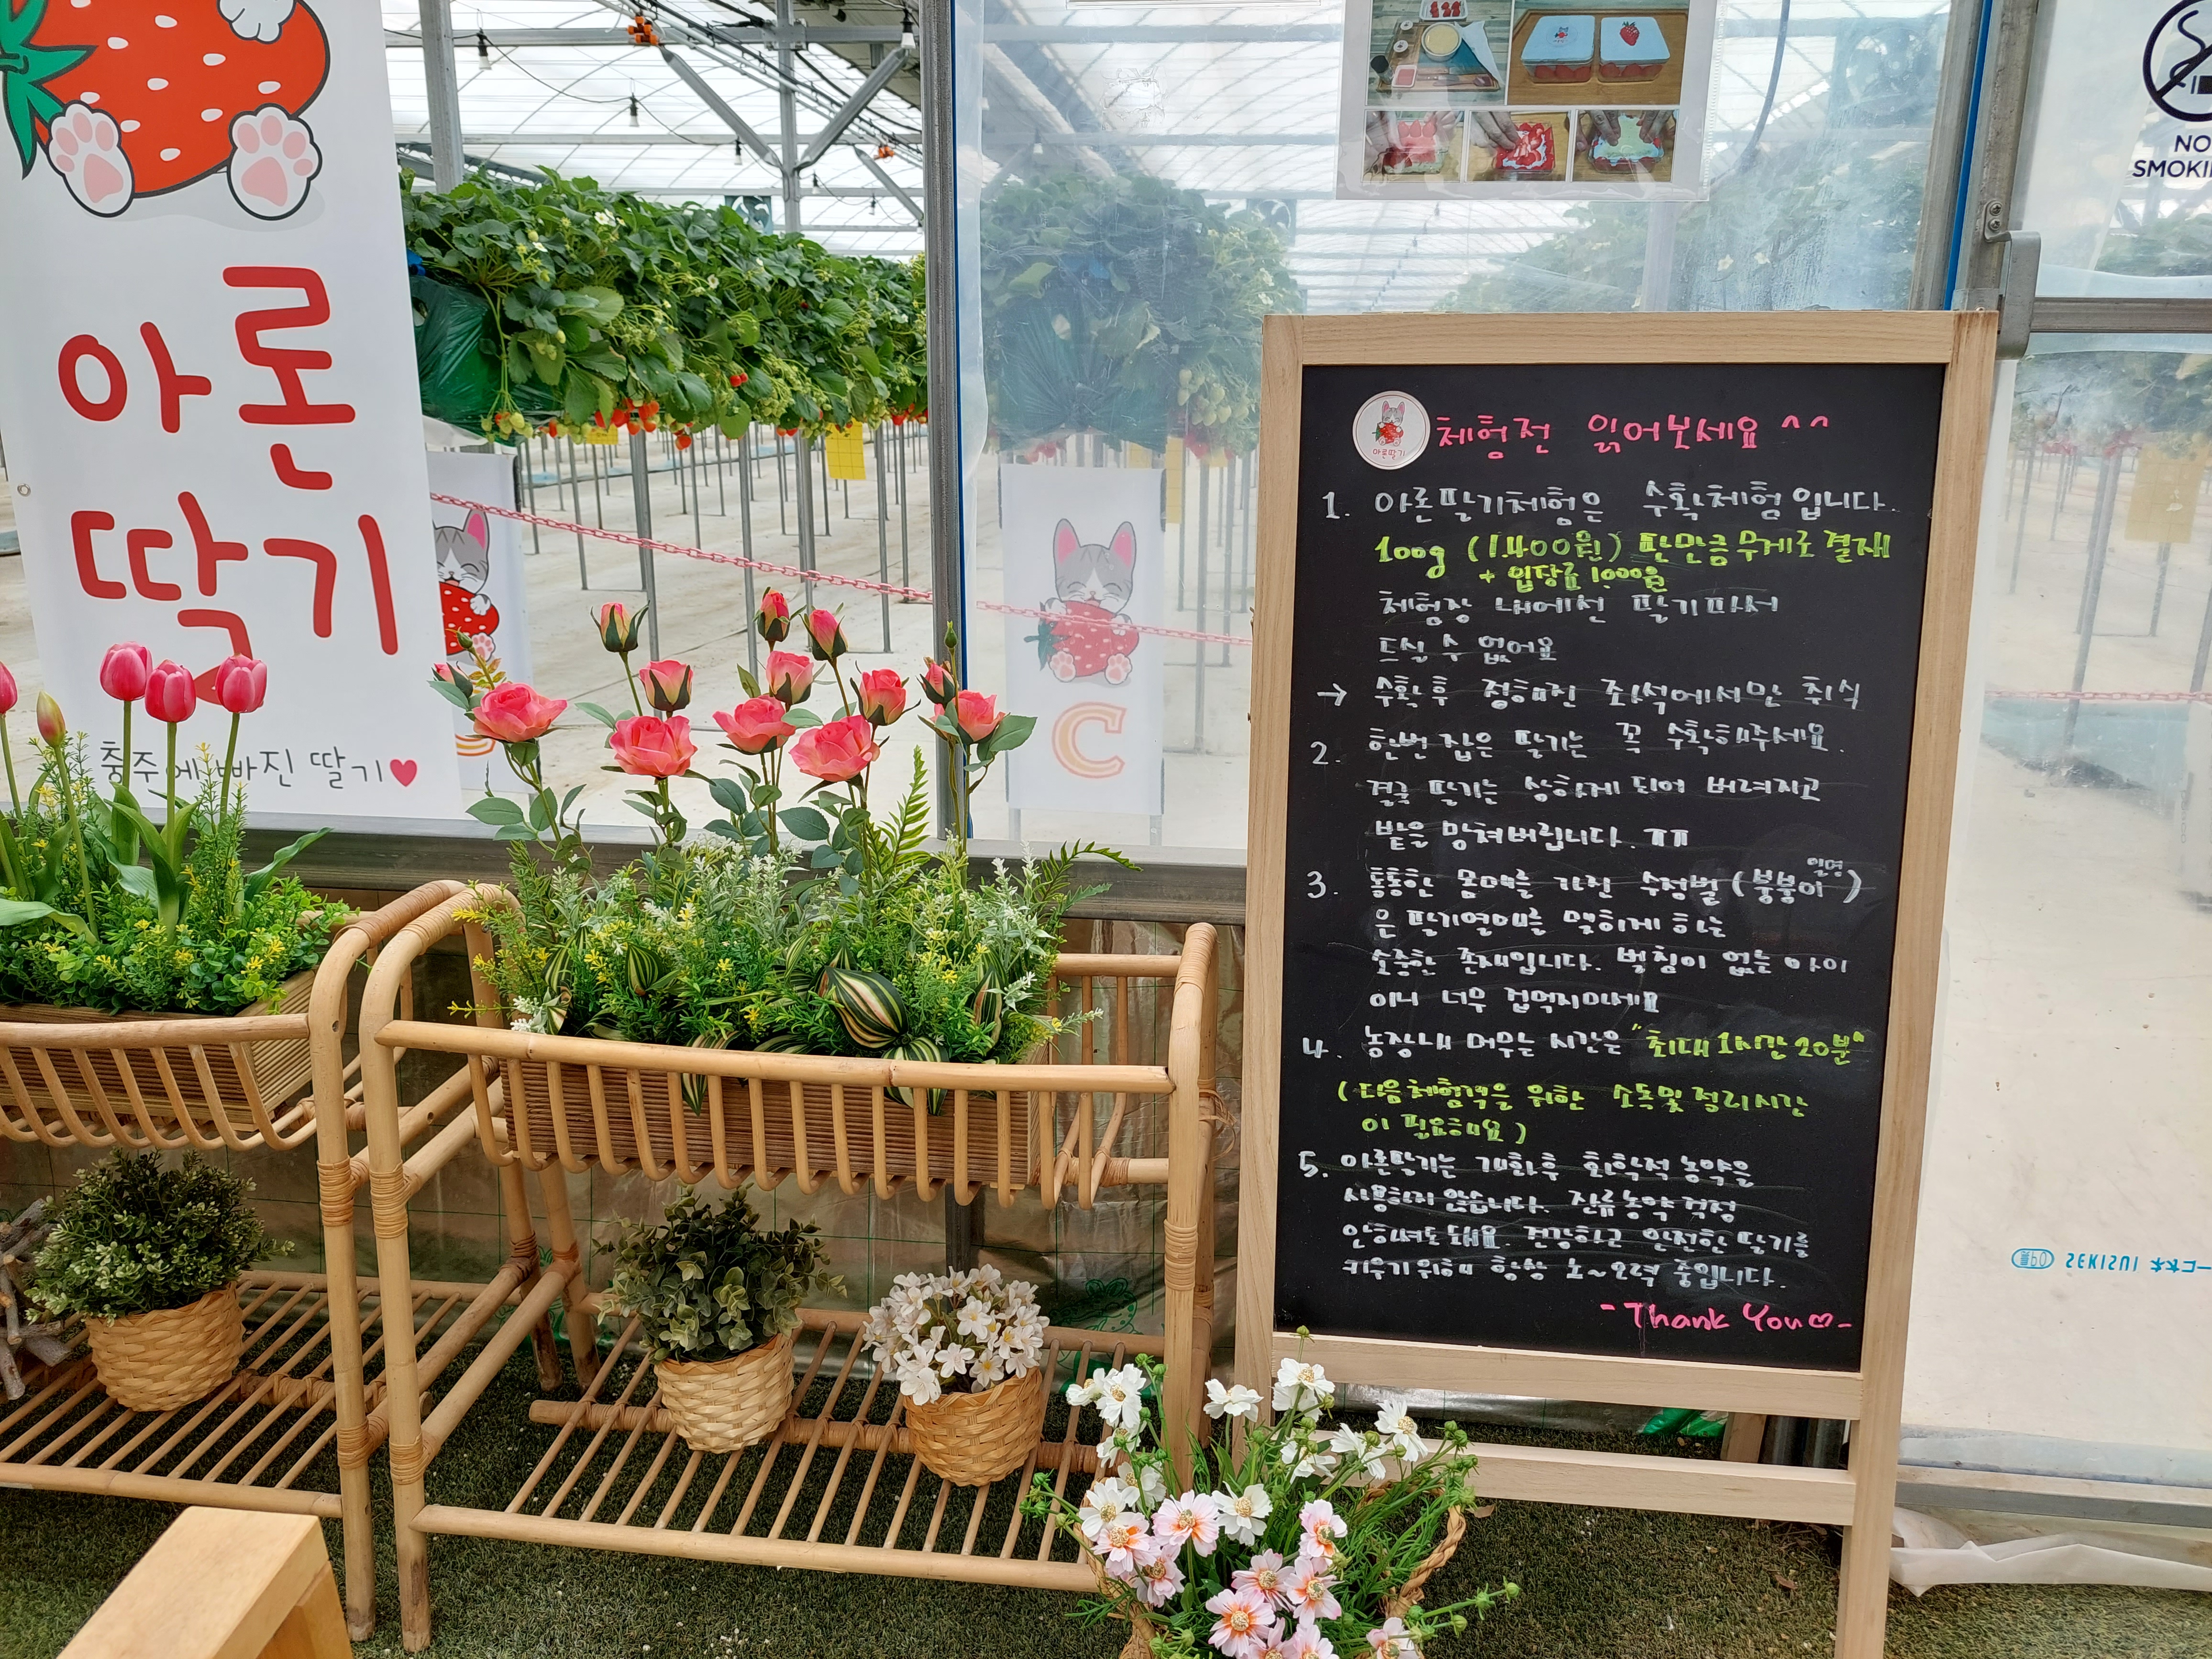 아론
딸기
충주에 빠진 딸기♥
C
NO
아론딸기
체험전 읽어보세요 ^^
1. 아론딸기체험은 수확체험입니다.
100g (1.400원) 딴만큼 무게로 결제
+ 입장료 1,000원
체험장 내에선 딸기따서
드실 수 없어요
→ 수확후 정해진 좌석에서만 취식
2. 한번 잡은 딸기는 꼭 수확해주세요.
결국 딸기는 상하게 되어 버려지고
밭을 망쳐버립니다. ㅠㅠ
3. 통통한 몸매를 가진 수정벌 (일명 붕붕이)
은 딸기열매를 맺히게 하는
소중한 존재입니다. 벌침이 없는 아이
이니 너무 겁먹지마세요
4. 농장내 머무는 시간은 "최대 1시간 20분"
(다음체험객을 위한 소독및 정리시간
이 필요해요)
5. 아론딸기는 개화후 화학적 농약을
사용하지 않습니다. 잔류농약 걱정
안하셔도 돼요. 건강하고 안전한 딸기를
키우기위해 항상 노~오력 중입니다.
- Thank You♡-
SEKISUI